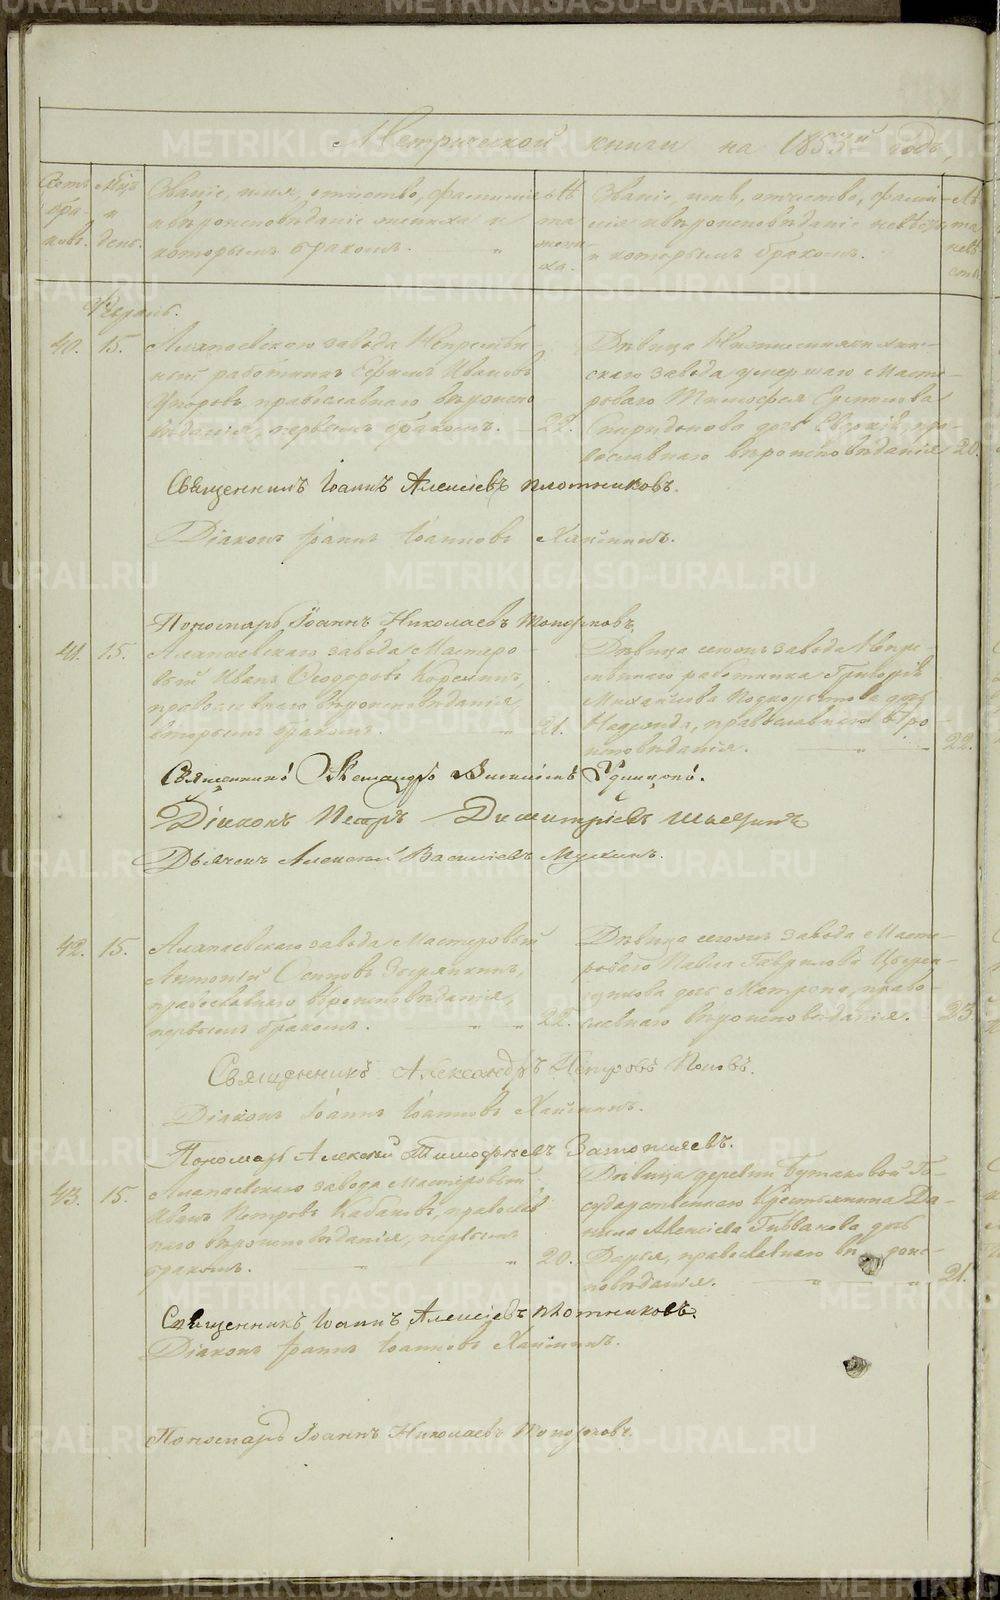 Метрической книги на 1853й годъ,
Счетъ бра- ковъ.
Мѣц. и день.
Званіе, имя, отчество, фамилія
и вѣроисповѣданіе жениха и
которымъ бракомъ.
Лѣ-
та
жени-
ха.
Званіе, имя, отчество, фами-
лія и вѣроисповѣданіе невѣсты
и которымъ бракомъ.
Лѣ-
та
невѣ-
сты.
40. 15. Алапаевскаго завода Непремѣн-
ный работникъ Ефимъ Ивановъ
православнаго вѣроиспо-
вѣданія первымъ бракомъ. 22.
Дѣвица
скаго завода умершаго Масте-
роваго Тимофея
Спиридонова дочь пра-
вославнаго вѣроисповѣданія 20.
Священникъ Іоаннъ Алексіевъ Плотниковъ.
Діаконъ Іоаннъ Іоанновъ
Пономарь Іоаннъ Николаевъ Топорковъ.
41. 15. Алапаевскаго завода Мастеро-
вый Иванъ Ѳеодоровъ
православнаго вѣроисповѣданія,
вторымъ бракомъ. 21.
Дѣвица сегожъ завода Непре-
мѣннаго работника Григорія
Михайлова дочь
Надежда, православнаго вѣро-
исповѣданія. 22.
Священникъ Александръ Васильевъ Удинцовъ.
Діаконъ Петръ Димитріевъ
Дьячекъ Алексѣй Василіевъ
42. 15. Алапаевскаго завода Мастеровый
Антоній Осиповъ Зырянкинъ,
православнаго вѣроисповѣданія,
первымъ бракомъ. 22.
Дѣвица сегожъ завода Масте-
роваго Павла Гаврилова
дочь Матрена, право-
славнаго вѣроисповѣданія. 23.
Священникъ Александръ Петровъ Поповъ.
Діаконъ Іоаннъ Іоанновъ
Пономарь Алексѣй Тимофѣевъ
43. 15. Алапаевскаго завода Мастеровый
Иванъ Петровъ Кабаковъ, православ-
наго вѣроисповѣданія, первымъ
бракомъ. 20.
Дѣвица деревни Бутаковой Го-
сударственнаго Крестьянина Да-
нила Алексіева дочь
Дарья, православнаго вѣроис-
повѣданія. 21.
Священникъ Іоаннъ Алексіевъ Плотниковъ.
Діаконъ Іоаннъ Іоанновъ
Пономарь Іоаннъ Николаевъ Топорковъ.
METRIKI.GASO-URAL.RU